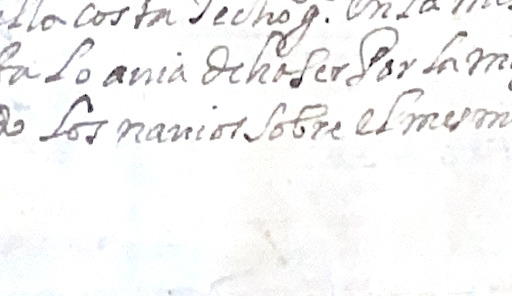 lla costa Se echo q. en la mis
ta lo auia de haser Por la m
do los nauios sobre el mesm